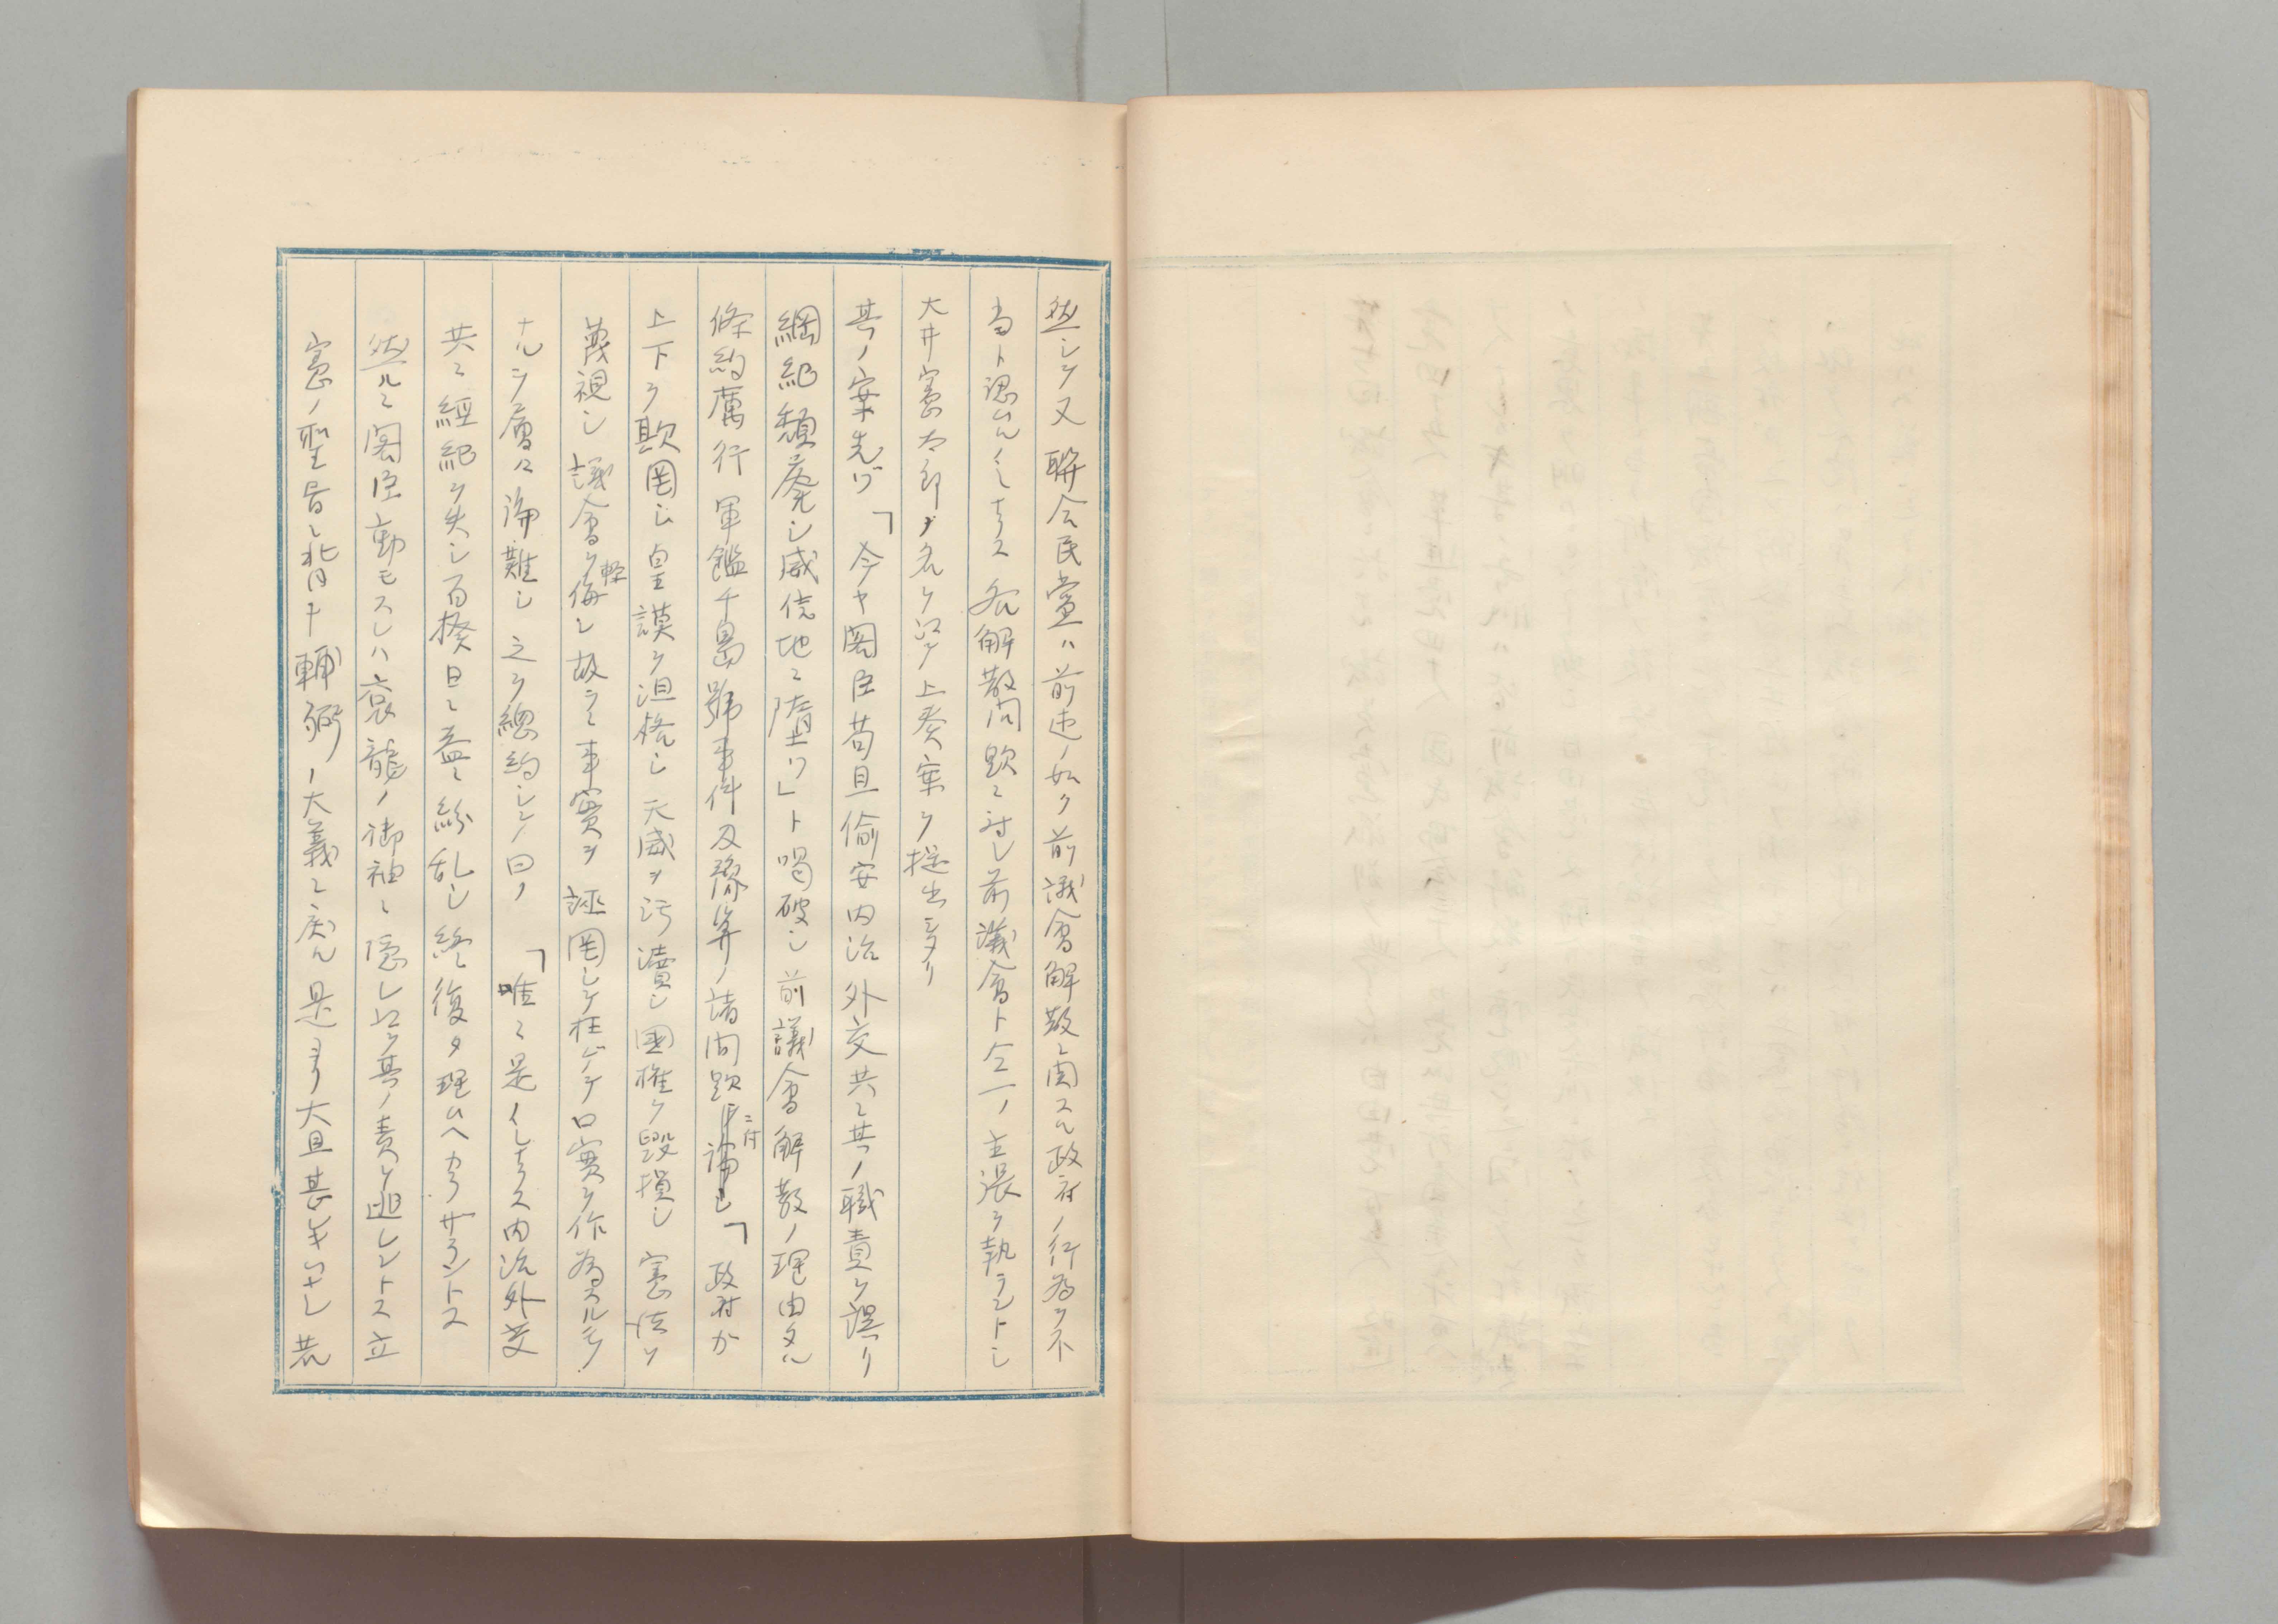 然シテ又聯合民黨ハ前述ノ如ク前議會解散ニ関スル政府ノ行為ヲ不
当ト認ムルノミナラス尚解散問題ニ対シ前議會ト仝一ノ主張ヲ執ラントシ
大井憲太郎ヂ名ヲ以テ上奏案ヲ提出シタリ
其ノ案先ヅ「今ヤ閣臣苟且偸安内治外交共ニ其ノ職責ヲ誤リ
綱紀頽廃シ威信地ニ墮ツ」ト喝破シ前議會解散ノ理由タル
條約厲行軍艦千島號事件及豫算ノ諸問題ニ付論シ「政府カ
上下ヲ欺罔シ皇謨ヲ沮格シ天威ヲ汚瀆シ國権ヲ毀損シ憲法ヲ
蔑視シ議會ヲ軽侮シ故ラニ事實ヲ誣罔シテ枉ゲテ口實ヲ作為スルモノ
ナルヲ層々論難シ之ヲ總約シテ曰ク「唯ニ是ノミナラス内治外交
共ニ經紀ヲ失シ百揆日ニ益々紛乱シ終ニ復タ理ムヘカラザラントス
然ルニ閣臣動モスレハ袞龍ノ御袖ニ隠レ以テ其ノ責ヲ逃レントス立
憲ノ聖旨ニ背キ輔弼ノ大義ニ戻ル是ヨリ大且甚キハナシ若